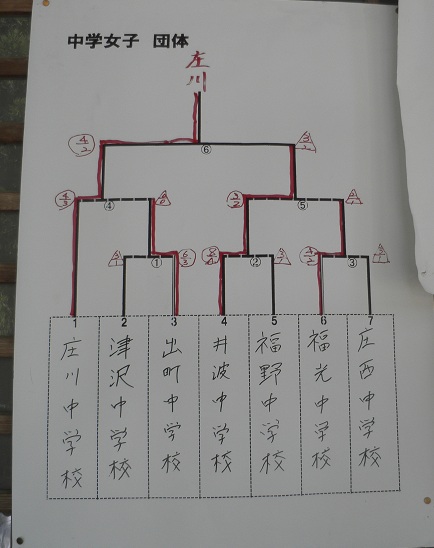 中学女子 団体
庄川
4/2
3/2
⑥
4/3
3/2
④
⑤
6/3
4/2
①
②
③
1 2 3 4 5 6 7
庄川中学校
津沢中学校
出町中学校
井波中学校
福野中学校
福光中学校
庄西中学校